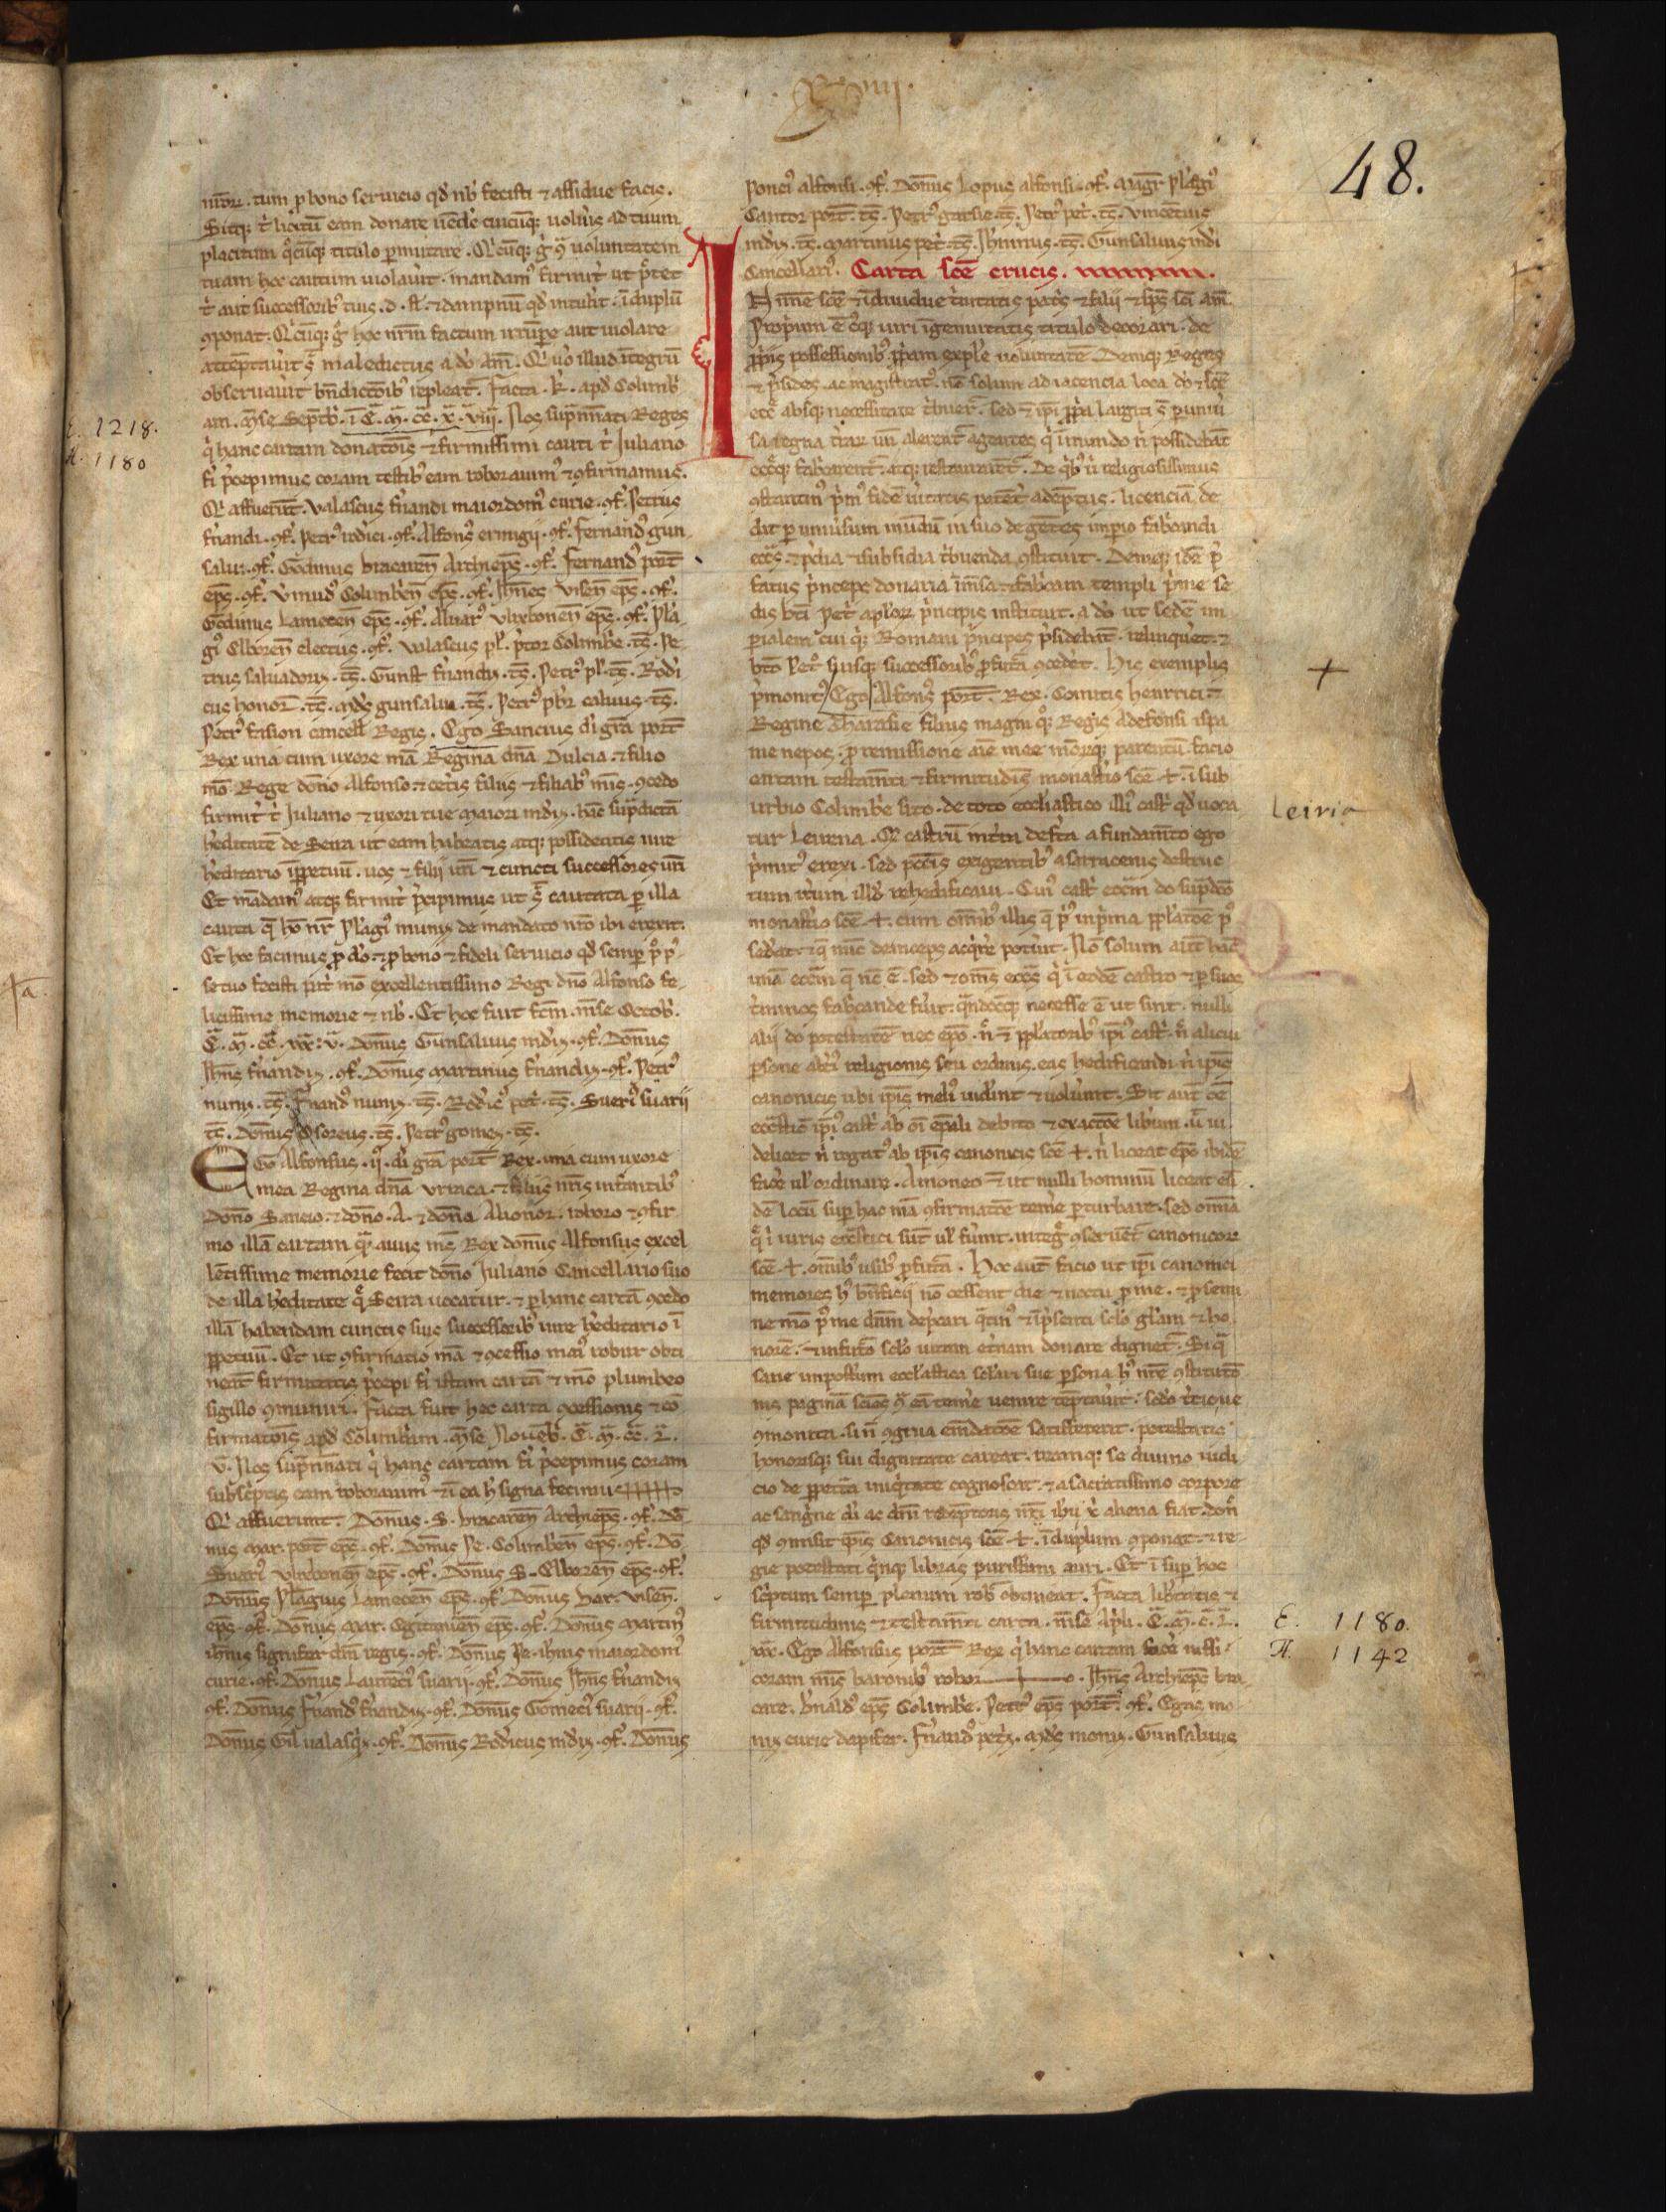 48.
mo℞. tum p bono seruicio qd nb fecisti ⁊ assidue facis.
Sitq; t licitũ eam donare uẽdere cuicũq; uolu̾is ad tuum
placitum qcũq; titulo pmutare. Q̾cũq; g̾ uoluntatem
tuam hoc cautum uiolau̾it. mandam⁹ firmit̾ ut
t̾ aut successorib⁹ tuis .d. sł. ⁊ dampnũ qd intul̾it. ĩ duplũ
ꝯponat. Q̾cũq; g̾ hoc nr̃m factum irrũpe aut uiolare
atteptau̾it maledictus a do am̃. Q̾ u̾o illud ĩtegrũ
obseruau̾it bñdictõib⁹ repleat̾. Facta .k. apd Colimb̾
am. mẽse Septẽb̾. ĩ Ẽ. m̃. cc̃. x. viij. Nos supͣnoĩati Reges
E. 1218.
A. 1180
q̾ hanc cartam donatõis ⁊ firmissimi cauti t̾ Iuliano
f̾i p̾cepimus coram testib⁹ eam roborauim⁹ ⁊ ꝯfirmamus.
Q̾ affuerũt. Valascus f̾nandi maiordom⁹ curie. ꝯf. Petrus
f̾nandi. ꝯf. Petr⁹ rodici. ꝯf. Alfons⁹ ermigij. ꝯf. Fernand⁹ gun
salui. ꝯf. Godinus bracareñ Archiep̃s. ꝯf. Fernand⁹ port̃
ep̃s. ꝯf. V̾mud⁹ Columb̾eñ ep̃s. ꝯf. Ioh̃nes Viseñ ep̃s. ꝯf.
Godinus Lameceñ ep̃s. ꝯf. Aluar⁹ Vlixboneñ ep̃s. ꝯf. Pla
gi⁹ Elboreñ electus. ꝯf. Valascus pl̾. p̾tor Colimb̾e. ts̃. Pe
trus saluadoris. ts̃. Gunsł f̾nandis. ts̃. Petr⁹ pl̾. ts̃. Rodi
cus honor̃. ts̃. mẽds gunsalui. ts̃. Petr⁹ pb̾r caluus. ts̃.
Petr⁹ faision cancell̾ Regis. Ego Sancius di gr̃a port̃
Rex una cum uxore mã Regina dña Dulcia. ⁊ filio
mõ Rege dõno Alfonso ⁊ cet̾is filiis ⁊ filiab⁹ m̃is. ꝯcedo
firmit̾ t̾ Iuliano ⁊ uxori tue maiori mẽdis. hãc supͣdictã
h̾editatẽ de Serra ut eam habeatis atq; possideatis iure
h̾editario ĩ ppetuũ. uos ⁊ filij ur̃i ⁊ cuncti successores ur̃i
Et mãdam⁹ atq; firmit̾ p̾cipimus ut cautata p illa
cauta q̃ Pelagi⁹ munis de mandato nr̃o ibi erexit.
Et hoc facimus p do. ⁊ p bono ⁊ fideli seruicio qd semp
se tuo fecisti patri mõ excellentissimo Regi dño Alfonso fe
licissime memorie ⁊ nb. Et hoc fuit fc̃m. m̃se Octob̾.
Ẽ. m̃. cc̃. xx. v. Dõnus Gunsaluus mẽdis. ꝯf. Dõnus
Ioh̃s f̾nandis. ꝯf. Dõnus martinus f̾nandis. ꝯf. Petr⁹
nunis. ts̃. F̾nand⁹ nunis. ts̃. Rodic⁹ pet̾. ts̃. Sueri⁹ suarij
ts̃. Dõnus Osoreus. ts̃. Petr⁹ gomes. ts̃.
Ego Alfonsus .ij. di gr̃a port̃ Rex. una cum uxore
mea Regina dña Vrraca. ⁊ filiis nr̃is infantib⁹
dõno Sancio. ⁊ dõno .A. ⁊ dõna Alionor. roboro ⁊ ꝯfir
mo illã cartam q̃. auus m̃s Rex dõnus Alfonsus excel
lẽtissime memorie fecit dõno Iuliano Cancellario suo
de illa h̾editate q̃ Serra uocatur. ⁊ p hanc cartã ꝯcedo
illã habendam cunctis suis successorib⁹ iure h̾editario ĩ
ppetuũ. Et ut ꝯfirmatio mã ⁊ ꝯcessio mai⁹ robur obti
neat firmitatis p̾cepi f̾i istam cartã ⁊ mõ plumbeo
sigillo ꝯmuniri. Facta fuit hec carta ꝯcessionis ⁊ cõ
firmatõis apd Columb̾iam. m̃se Nouẽb̾. Ẽ. m̃. cc̃. L.
v. Nos supͣnoĩati q̾ hanc cartam f̾i p̾cepimus coram
subsc̾ptis eam roborauim⁹ ⁊ ĩ ea h̾ signa fecimus +++++
Q̾ affuerunt. Dõnus .S. bracareñ Archiep̃s. ꝯf. Dõ
nus Mar. port̃ ep̃s. ꝯf. Dõnus Pe. Colimb̾eñ ep̃s. ꝯf. Dõ
Sueri⁹ Vlixboneñ ep̃s. ꝯf. Dõnus S. Elboreñ ep̃s. ꝯf.
Dõnus Plagius Lameceñ ep̃s. ꝯf. Dõnus bar. Viseñ.
ep̃s. ꝯf. Dõnus Mar. Egitanieñ ep̃s. ꝯf. Dõnus Martin⁹
ioh̃nis signifer dñi regis. ꝯf. Dõnus Pe. ioh̃nis maiordom⁹
curie. ꝯf. Dõnus Laurẽci⁹ suarij. ꝯf. Dõnus Ioh̃s f̾nandis
ꝯf. Dõnus F̾nand⁹ f̾nandis. ꝯf. Dõnus Gomeci⁹ suarij. ꝯf.
Dõnus Gil ualasqis. ꝯf. Dõnus Rodicus mẽdis. ꝯf. Dõnus
Ponci⁹ alfonsi. ꝯf. Dõnus Lopus alfonsi. ꝯf. Magr̃ Plagi⁹
Cantor port̃. ts̃. Petr⁹ garsie. ts̃. Petr⁹ pet̾. ts̃. Vincẽtius
mẽdis. ts̃. Martinus pet̾. ts̃. Ioh̃ninus. ts̃. Gunsaluus mẽdi
Cancellari⁹. Carta sc̃e crucis.
IN noĩe sc̃e ⁊ ĩdiuidue t̾nitatis pat̾s ⁊ filij ⁊ sp̃s sc̃i am̃.
Prop̾um ẽ cuiq; uiri ĩgenuitatis titulo decorari. de
pp̾is possessionib⁹ pp̾iam explẽ uoluntatẽ. Deniq; Reges
⁊ p̾sides. ac magistrat⁹. nõ solum adiacencia loca do ⁊ sc̃e
ecc̃e absq; necessitate t̾buer̃. sed ⁊ ip̃i pp̾a largiti s̃ p uniu̾
sa regna agentes q̾ ĩ mundo n̾ possidebãt
ecc̃asq; fab̾carent̾. atq; restaurarẽt̾. De q̾b⁹ religiosissimus
ꝯstantin⁹ p̾m⁹ fidẽ adeptus. licenciã de
dit p uniu̾sum mũdũ in suo degẽtes imp̾io fab̾candi
ecc̃as. ⁊ p̾dia ⁊ subsidia t̾buenda ꝯstituit. Deniq; idẽ p̾
fatus p̾nceps donaria ĩm̃sa. ⁊ fab̾cam templi p̾me se
dis bt̃i Pet̾ ap̾lo℞ p̾ncipis instituit. a do ut sedẽ im
p̾ialem cui q; Romani p̾ncipes p̾sidebãt. relinqu̾et. ⁊
bt̃o Pet⁰ suisq; successorib⁹ pfut̾ã ꝯced̾et. His exemplis
+
p̾monit⁹ Ego Alfons⁹ port̃. Rex. Comitis henrrici. ⁊
Regine Tharasie filius magni q̾. Regis Adefonsi ispa
nie nepos. p remissione aĩe mee meo℞q; parentũ facio
cartam testam̃ti ⁊ firmitudis monast̾io sc̃e +. ĩ sub
urbio Colimb̾e sito. de toto eccl̾iastico illi⁹ cast̾i qd uoca
tur Leirena. Q̾ castrũ ĩ t̾ra def̾ta a fundam̃to ego
Leiria
p̾mit⁹ erexi. sed pcc̃is exigentib⁹ a sarracenis destruc
tum it̾um illd rehedificaui. Cui⁹ cast̾i ecc̃iam do supͣdc̃o
monast̾io sc̃e +. cum om̃ib⁹ illis q̃ p̾⁹ inp̾ma pplatõe pos
sedeat. ⁊ q̃ nũc deinceps acq̾rere pot̾int. Nõ solum aut̃ hãc
unã ecc̃iam q̃ nũc ẽ. sed ⁊ om̃s ecc̃as q̾ ĩ eodẽ castro ⁊ p suos
t̾minos fab̾cande fu̾int. qñdocũq; necesse ẽ ut sint. nulli
alij do potestatẽ nec ep̃o. n̾ ⁊ pplatorib⁹ ip̃i⁹ cast̾i. n̾ alicui
psone alt̾i⁹ religionis seu ordinis. eas hedificandi n̾ ip̃is
canonicis ubi ip̃is meli⁹ uid̾int ⁊ uolu̾int. Sit aut̃ oẽ
ecc̃astic̃ ip̃i⁹ cast̾i ab oĩ ep̃ali debito ⁊ exactõe lib̾um.
delicet n̾ rogat⁹ ab ip̃is canonicis sc̃e +. n̾ liceat ep̃o ibidẽ
fac̾e ul̾ ordinare. Amoneo ⁊ ut nulli hominũ liceat
dẽ locũ sup hac mã ꝯfirmatõe tem̾e pturbare. sed om̃ia
q̃ ĩ iuris ecc̃astici sũt ul̾ fu̾int. integ̾ ꝯseruẽt̾ canonico℞
sc̃e +. om̃ib⁹ usib⁹ pfut̾ã. Hoc aut̃ facio ut ip̃i canonici
memores h̾⁹ bñficij nõ cessent die ⁊ noctu p me. ⁊ p semi
ne mõ p⁹ me dñm dep̾cari q̃tin⁹ ⁊ ĩ p̾senti sc̾lo gl̾iam ⁊ ho
norẽ. ⁊ in fut̾o sc̾lo uitam et̾nam donare dignet̾. Si q̾
sane impost̾um eccl̾astica sc̾larisue psona h̾⁹ nr̃e ꝯstitutõ
nis paginã sciẽs ꝯt̾ eã tem̾e uenire teptau̾it. sc̾do t̾cioue
ꝯmonita. si n̾ ꝯgrua emẽdatõe satisfecerit. potestatis
honorisq; sui dignitate careat. reamq; se diuino iudi
cio de ppet̾ata iniq̾tate cognoscat. ⁊ a sacratissimo corpore
ac sangine di ac dñi redeptoris nr̃i ih̃u x̾ aliena fiat. donec
qd ꝯmisit ip̃is Canonicis sc̃e +. ĩ duplum ꝯponat. ⁊ re
gie potestati q̾nq; libras purissimi auri. Et ĩsup hoc
sc̾ptum semp plenum rob̾ obtineat. Facta lib̾tatis ⁊
firmitudinis ⁊ testam̃ti carta. m̃se Ap̾li. Ẽ. m̃. c̃. L.
E. 1180.
xxx. Ego Alfonsus port̃ Rex q̾ hanc cartam fac̾e iussi
A. 1142
coram m̃is baronib⁹ robor———o. Ioh̃s Archiep̃s bra
care. b̾nald⁹ ep̃s Colimb̾e. Petr⁹ ep̃s port̃. ꝯf. Egas mo
nis curie dapifer. F̾nand⁹ pet̾s. mẽds monis. Gunsaluus